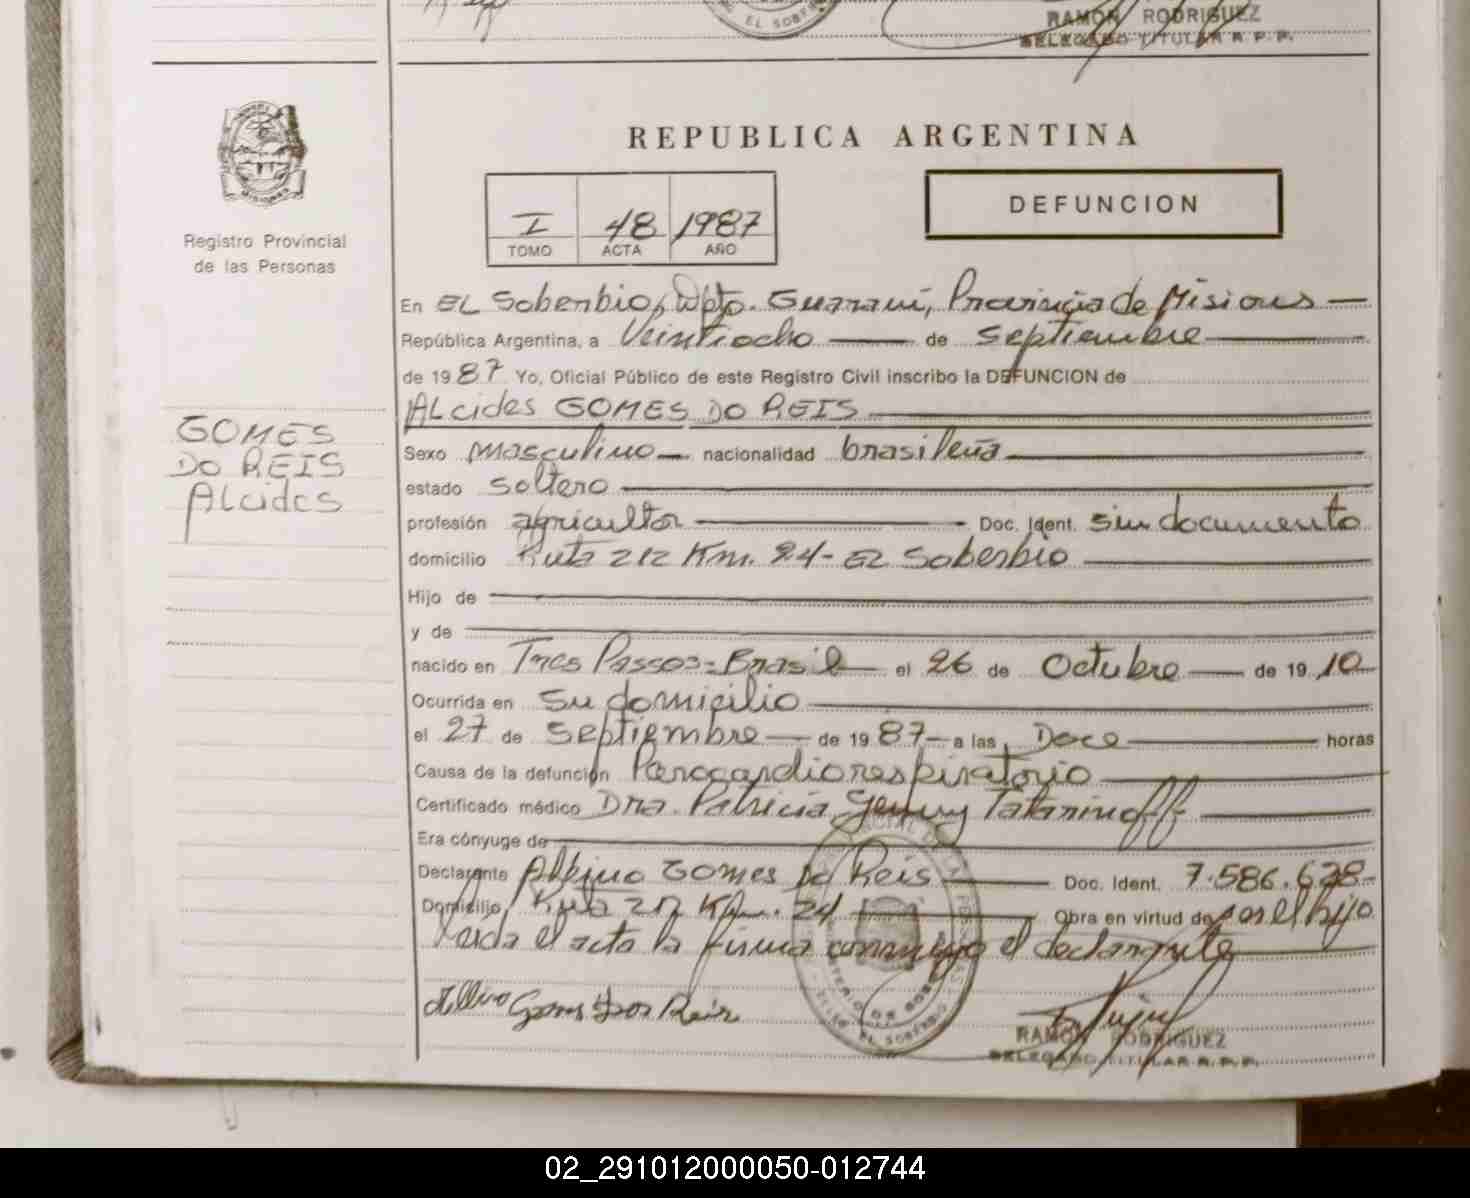 EL SOBERBIO
RAMON RODRIGUEZ
DELEGADO TITULAR R.P.P.
REPUBLICA ARGENTINA
DEFUNCION
I 48 1987
TOMO ACTA AÑO
Registro Provincial
de las Personas
En EL Soberbio, Dpto. Guaraní, Provincia de Misiones
República Argentina, a Veintiocho de septiembre
de 1987 Yo, Oficial Público de este Registro Civil inscribo la DEFUNCION de
ALcides GOMES DO REIS
GOMES
DO REIS
ALcides
Sexo masculino nacionalidad brasileña
estado soltero
profesión agricultor Doc. Ident. sin documento
domicilio Ruta 212 Km. 24 - EL Soberbio
Hijo de
y de
nacido en Tres Passos = Brasil el 26 de Octubre de 1910
Ocurrida en su domicilio
el 27 de septiembre de 1987 a las Doce horas
Causa de la defunción Parocardiorespiratorio
Certificado médico Dra. Patricia Tatarinoff
Era cónyuge de
Declarante Albino Gomes Do Reis Doc. Ident. 7.586.628
Domicilio Ruta 212 Km. 24 Obra en virtud de ser el hijo
Leída el acta la firma conmigo el declarante
RAMON RODRIGUEZ
DELEGADO TITULAR R.P.P.
EL SOBERBIO
02_291012000050-012744